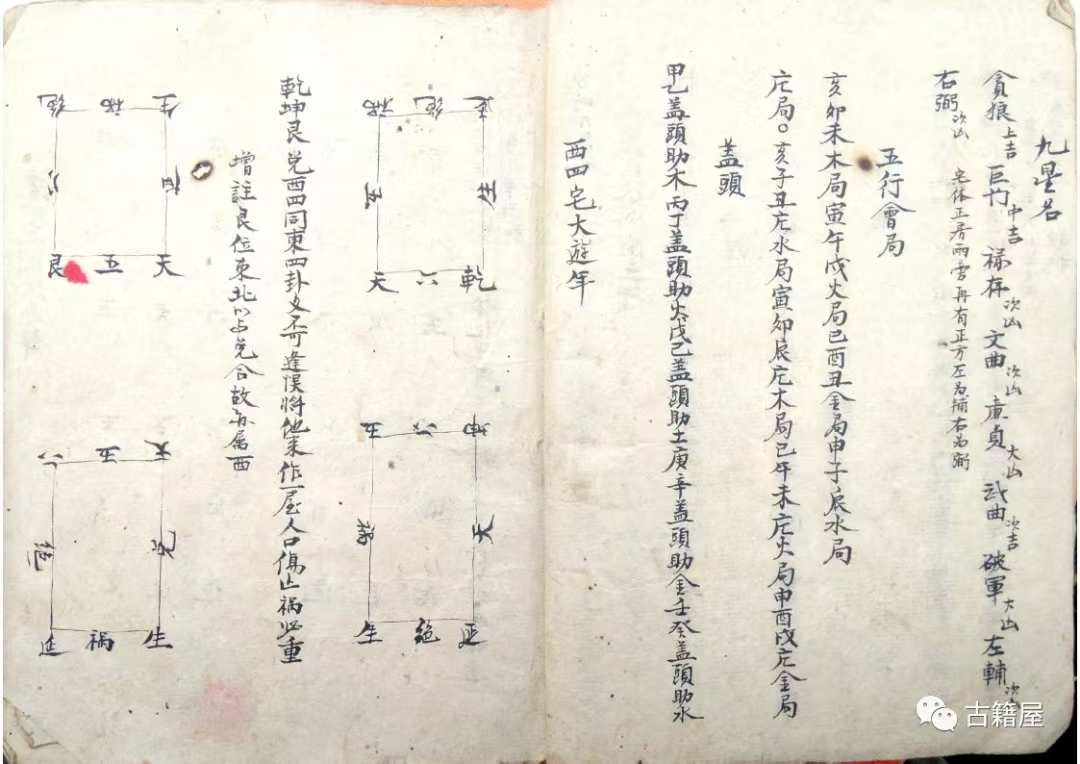 九星名
貪狼上吉 巨门中吉 禄存次凶 文曲次凶 廉貞大凶 武曲次吉 破軍大凶 左輔次吉
右弼次凶 宅体正居兩旁再有正方左为補右为弼
五行會局
亥卯未木局寅午戌火局巳酉丑金局申子辰水局
庀局○亥子丑庀水局寅卯辰庀木局巳午未庀火局申酉戌庀金局
蓋頭
甲乙蓋頭助木丙丁蓋頭助火戊己蓋頭助土庚辛蓋頭助金壬癸蓋頭助水
西四宅大遊年
延 绝 禍
生 五
乾 六 天
坤 六 五
天 禍
延 絕 生
乾坤艮兌西四同東四卦爻不可逢悮將他来作一屋人口傷亡祸必重
增註艮位東北以与兌合故亦属西
生 祸 绝
延 六
天 五 艮
天 五 六
兌 絕
生 禍 延
古籍屋